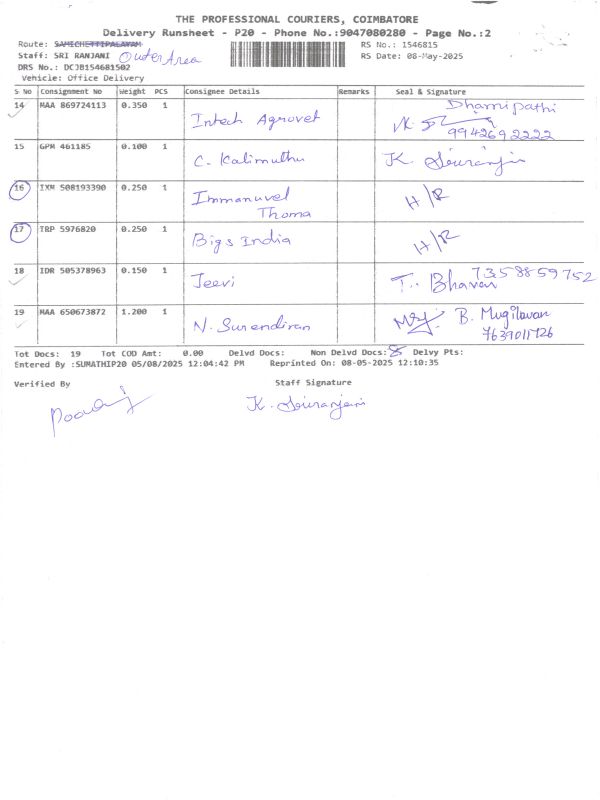 THE PROFESSIONAL COURIERS, COIMBATORE
Delivery Runsheet - P20 - Phone No.:9047080280 - Page No.:2
Route: SAMICHETTIPALAYAM
RS No.: 1546815
Staff: SRI RANJANI Outer Area
RS Date: 08-May-2025
DRS No.: DCJB154681502
Vehicle: Office Delivery
S No Consignment No Weight PCS Consignee Details Remarks Seal & Signature
14 MAA 869724113 0.350 1 Intech Agrovet Dharnipathi
9942692222
15 GPM 461185 0.100 1 C. Kalimuthu K. Souranjani
16 IXM 508193390 0.250 1 Immanuvel H/R
Thoma
17 TRP 5976820 0.250 1 Bigs India H/R
18 IDR 505378963 0.150 1 Jeevi T. Bhavan 7358859752
19 MAA 650673872 1.200 1 N. Surendiran B. Mugilavan
7639011726
Tot Docs: 19 Tot COD Amt: 0.00 Delvd Docs: Non Delvd Docs: 8 Delvy Pts:
Entered By :SUMATHIP20 05/08/2025 12:04:42 PM Reprinted On: 08-05-2025 12:10:35
Verified By
Staff Signature
K. Souranjani